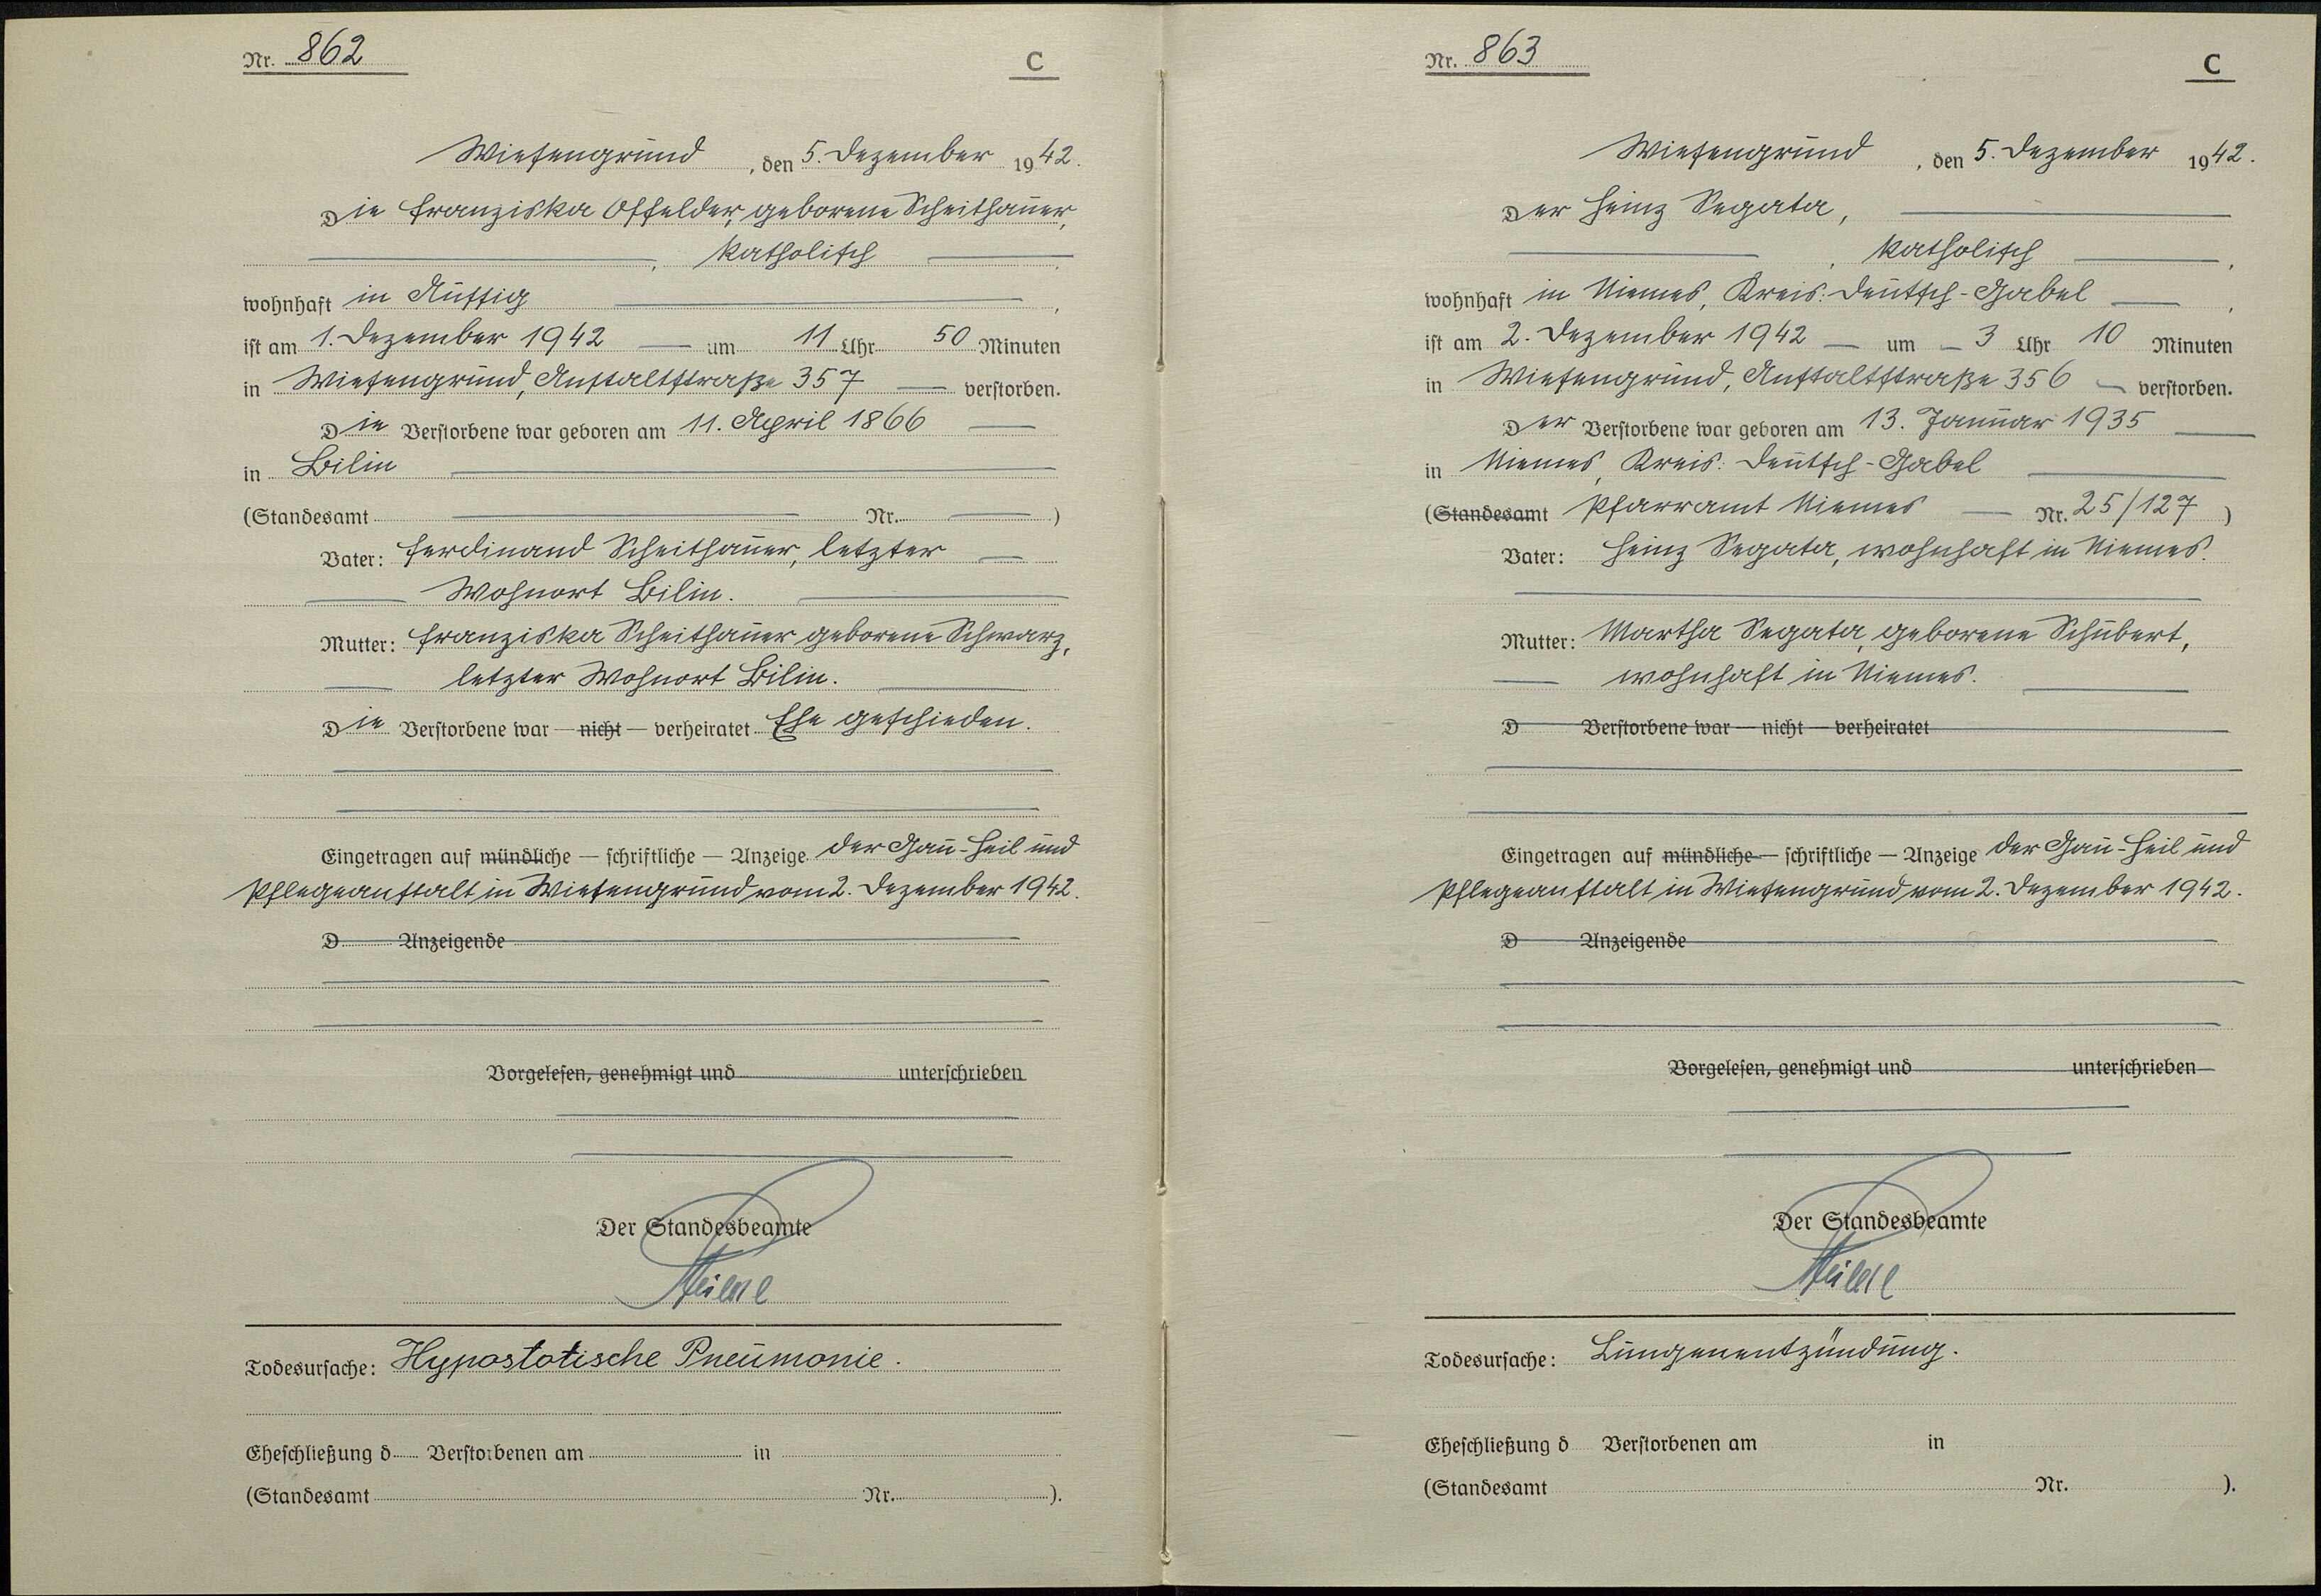 Nr. 862
C
Wiesengrund, den 5. Dezember 1942.
Die Franziska Offelder, geborene Scheithauer,
, katholisch,
wohnhaft in Aussig,
ist am 1. Dezember 1942 um 11 Uhr 50 Minuten
in Wiesengrund, Anstaltstraße 357 verstorben.
Die Verstorbene war geboren am 11. April 1866
in Bilin
(Standesamt Nr. )
Vater: Ferdinand Scheithauer, letzter
Wohnort Bilin.
Mutter: Franziska Scheithauer geborene Schwarz,
letzter Wohnort Bilin.
Die Verstorbene war — nicht — verheiratet Ehe geschieden.
Eingetragen auf mündliche — schriftliche — Anzeige der Gau-Heil und
Pflegeanstalt in Wiesengrund vom 2. Dezember 1942.
D Anzeigende
Vorgelesen, genehmigt und unterschrieben
Der Standesbeamte
Todesursache: Hypostatische Pneumonie.
Eheschließung d Verstorbenen am in
(Standesamt Nr. ).
Nr. 863
C
Wiesengrund, den 5. Dezember 1942.
Der Heinz Segata,
, katholisch,
wohnhaft in Niemes, Kreis: Deutsch-Gabel,
ist am 2. Dezember 1942 um 3 Uhr 10 Minuten
in Wiesengrund, Anstaltstraße 356 verstorben.
Der Verstorbene war geboren am 13. Januar 1935
in Niemes, Kreis: Deutsch-Gabel
(Standesamt Pfarramt Niemes Nr. 25/127 )
Vater: Heinz Segata, wohnhaft in Niemes.
Mutter: Martha Segata, geborene Schubert,
wohnhaft in Niemes.
D Verstorbene war — nicht — verheiratet
Eingetragen auf mündliche — schriftliche — Anzeige der Gau-Heil und
Pflegeanstalt in Wiesengrund vom 2. Dezember 1942.
D Anzeigende
Vorgelesen, genehmigt und unterschrieben
Der Standesbeamte
Todesursache: Lungenentzündung.
Eheschließung d Verstorbenen am in
(Standesamt Nr. ).